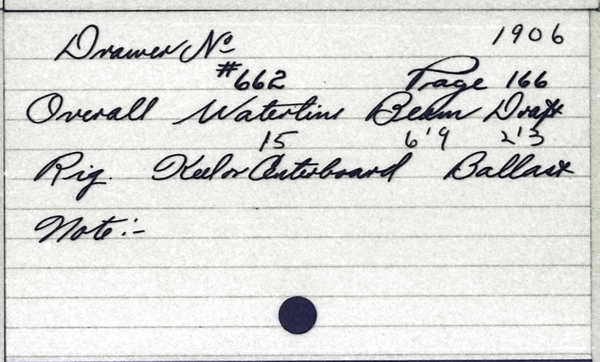 1906
Drawer No
#662 Page 166
Overall Waterline Beam Draft
15 6'9 2'3
Rig. Keel or Centerboard Ballast
Note:-